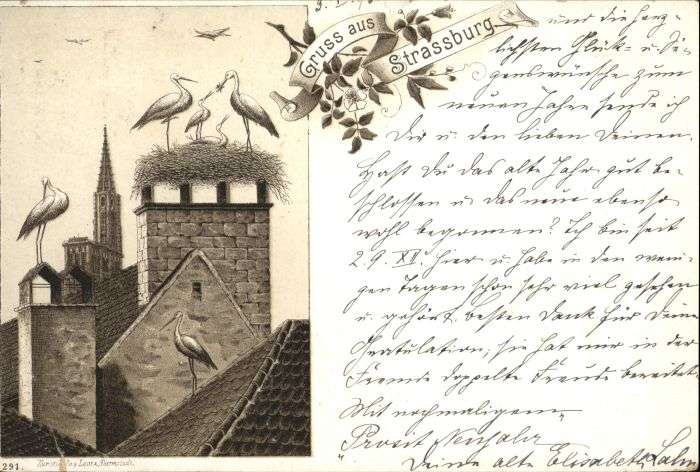 Gruss aus
Strassburg
und die herz-
lichsten Glück- u. Se-
genswünsche zum
neuen Jahre sende ich
Dir u. den lieben Deinen.
Hast Du das alte Jahr gut be-
schlossen u. das neue ebenso
wohl begonnen? Ich bin seit
29. XII. hier u. habe in den weni-
gen Tagen schon sehr viel gesehen
u. gehört. besten Dank für Deine
Gratulation, sie hat mir in der
Fremde doppelte Freude bereitet.
Mit nochmaligem
"Prosit Neujahr"
Deine alte Elisabeth
291.